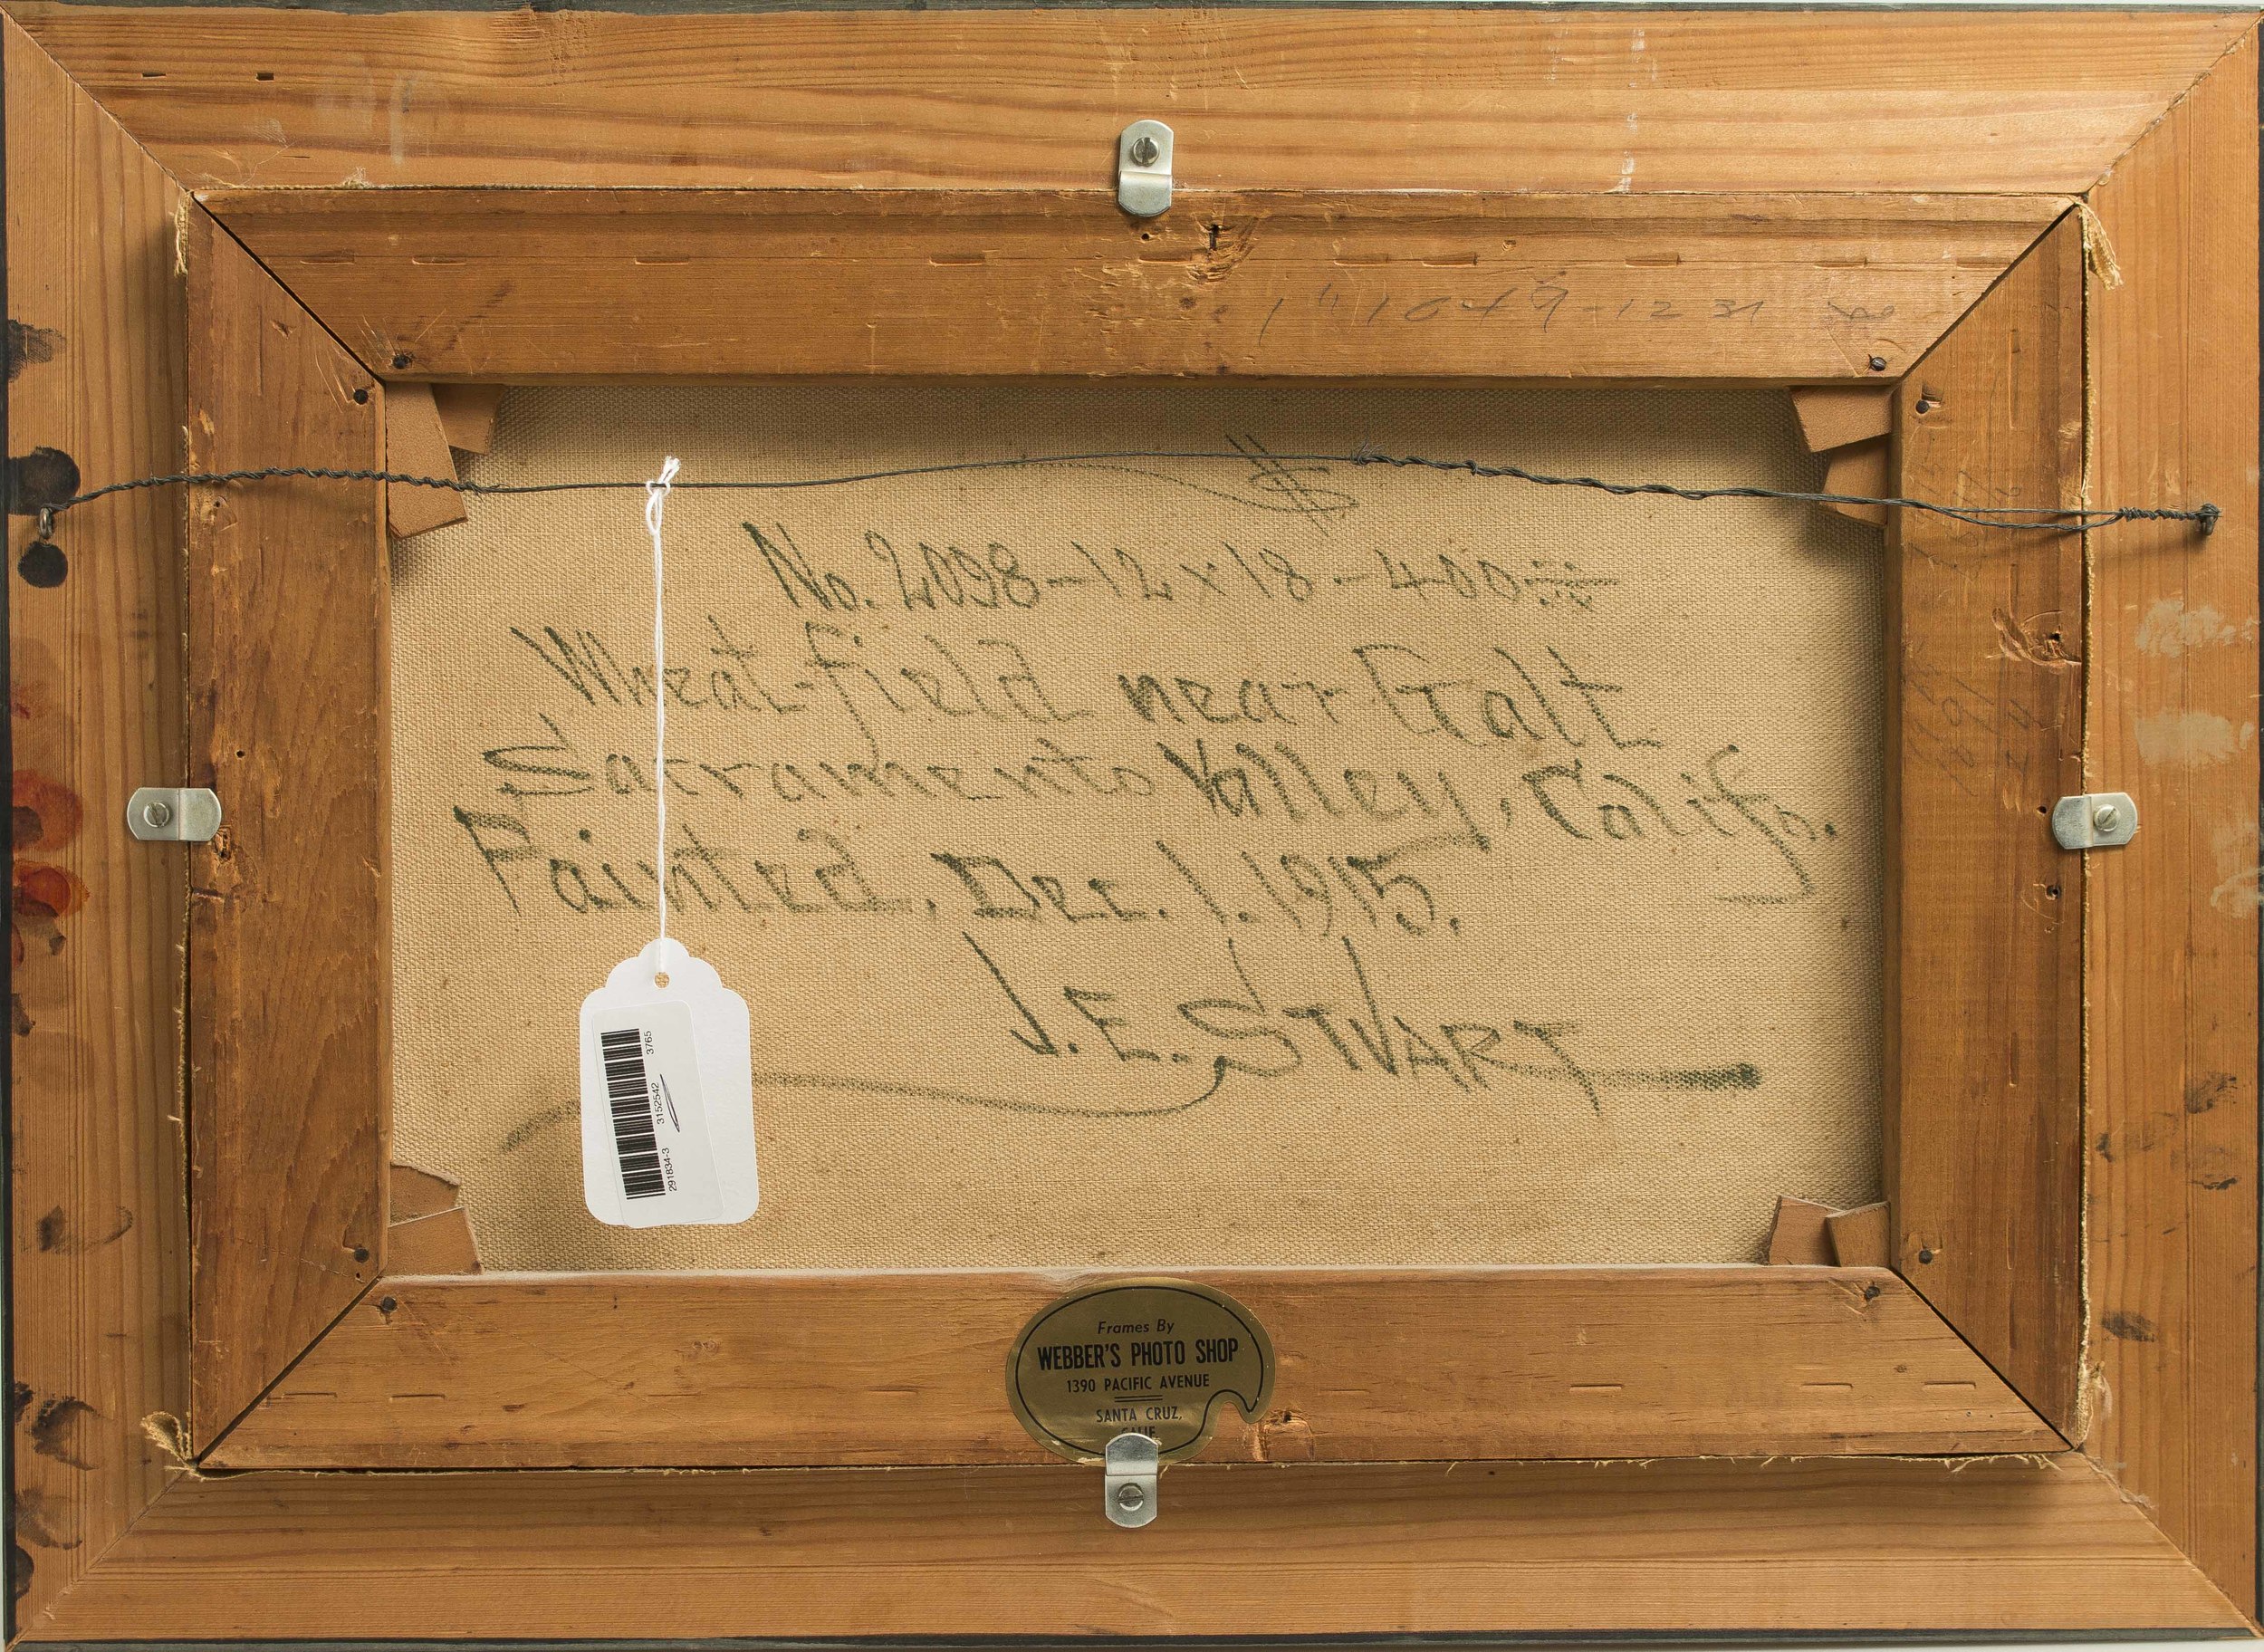 $
No. 2098-12x18-400
Wheat-field near Galt
Sacramento Valley, Califa.
Painted, Dec. 1. 1915.
J.E. STVART
3765
3152542
291834-3
Frames By
WEBBER'S PHOTO SHOP
1390 PACIFIC AVENUE
SANTA CRUZ,
CALIF.